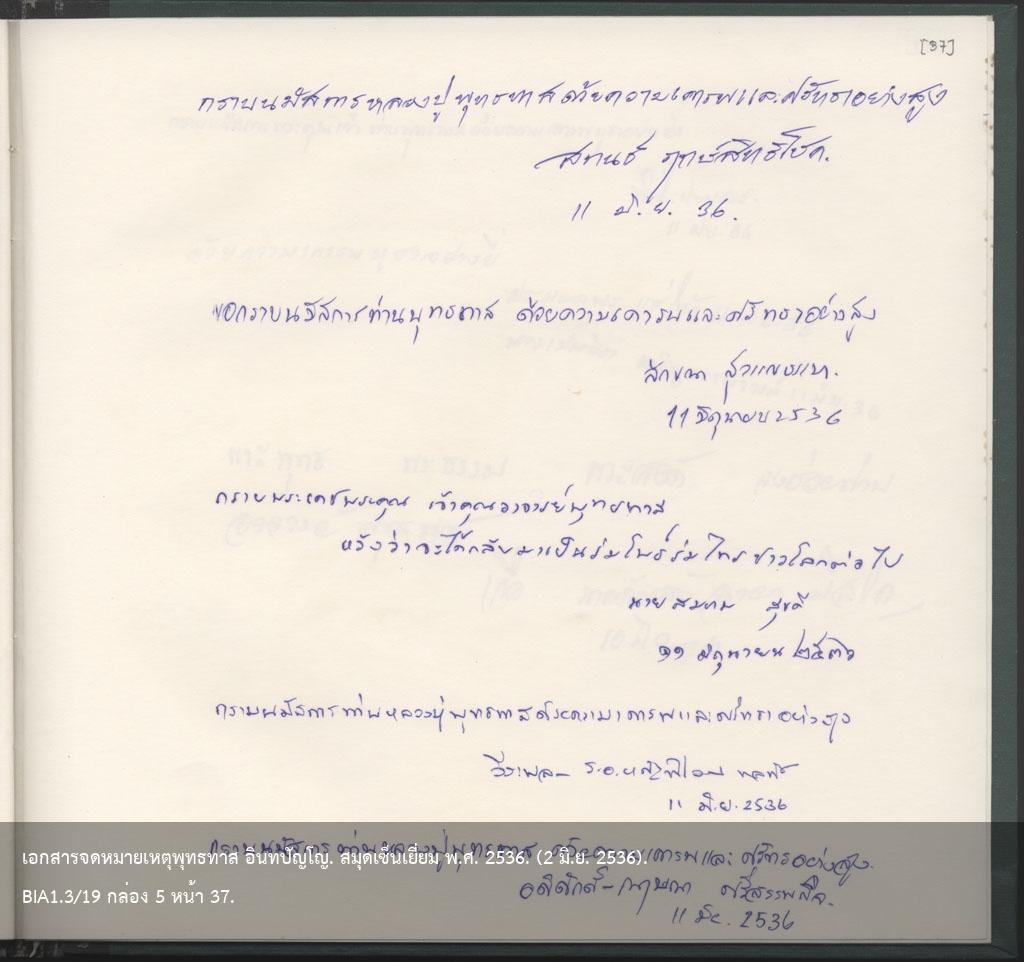 [37]
กราบนมัสการหลวงปู่พุทธทาสด้วยความเคารพและศรัทธาอย่างสูง
ฤทธิ์สิทธิโชค.
11 มิ.ย. 36.
ขอกราบนมัสการท่านพุทธทาส ด้วยความเคารพและศรัทธาอย่างสูง
ลักขณา
11 มิถุนายน 2536
กราบพระเดชพระคุณ เจ้าคุณอาจารย์พุทธทาส
หวังว่าจะได้กลับมาเป็นร่มโพธิ์ร่มไทรชาวโลกต่อไป
นาย สมาน สุขดี
๑๑ มิถุนายน ๒๕๓๖
กราบนมัสการท่านหลวงปู่พุทธทาสด้วยความเคารพและศรัทธาอย่างสูง
วีรพล - ร.อ.หญิง
11 มิ.ย. 2536
กราบนมัสการท่านหลวงปู่พุทธทาส ด้วยความเคารพและศรัทธาอย่างสูง.
เอกสารจดหมายเหตุพุทธทาส อินทปัญโญ. สมุดเซ็นเยี่ยม พ.ศ. 2536. (2 มิ.ย. 2536).
BIA1.3/19 กล่อง 5 หน้า 37.
อดิศักดิ์ - กฤษณา
11 มิย. 2536